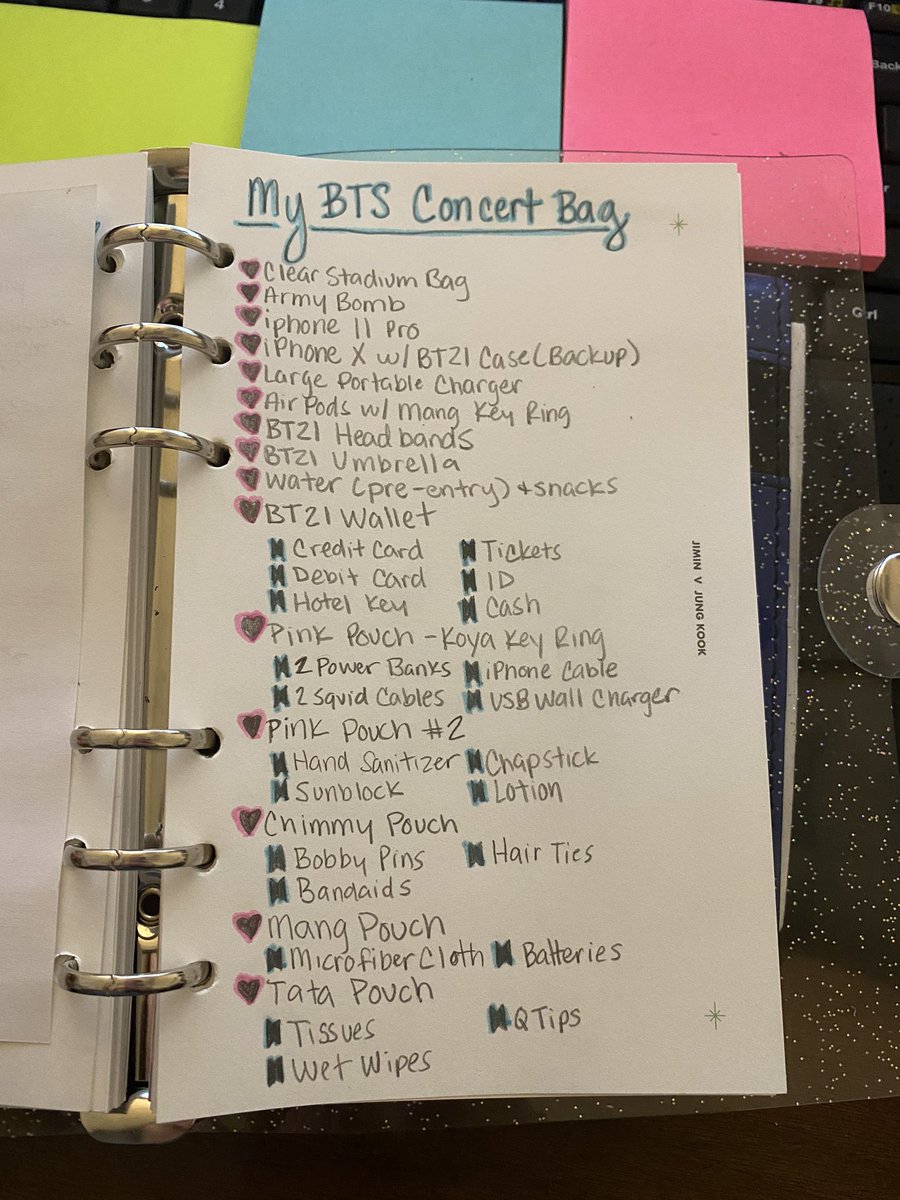 4
F9
F10
Back
Ctrl
My BTS Concert Bag
Clear Stadium Bag
Army Bomb
iphone 11 Pro
iPhone X w/ BT21 Case (Backup)
Large Portable Charger
Air Pods w/ Mang Key Ring
BT21 Headbands
BT21 Umbrella
Water (pre-entry) + snacks
BT21 Wallet
Credit Card Tickets
Debit Card ID
Hotel Key Cash
Pink Pouch - Koya Key Ring
2 Power Banks iPhone Cable
2 Squid Cables USB Wall Charger
Pink Pouch #2
Hand Sanitizer Chapstick
Sunblock Lotion
Chimmy Pouch
Bobby Pins Hair Ties
Bandaids
Mang Pouch
Microfiber Cloth Batteries
Tata Pouch
Tissues Q Tips
Wet Wipes
JIMIN V JUNG KOOK